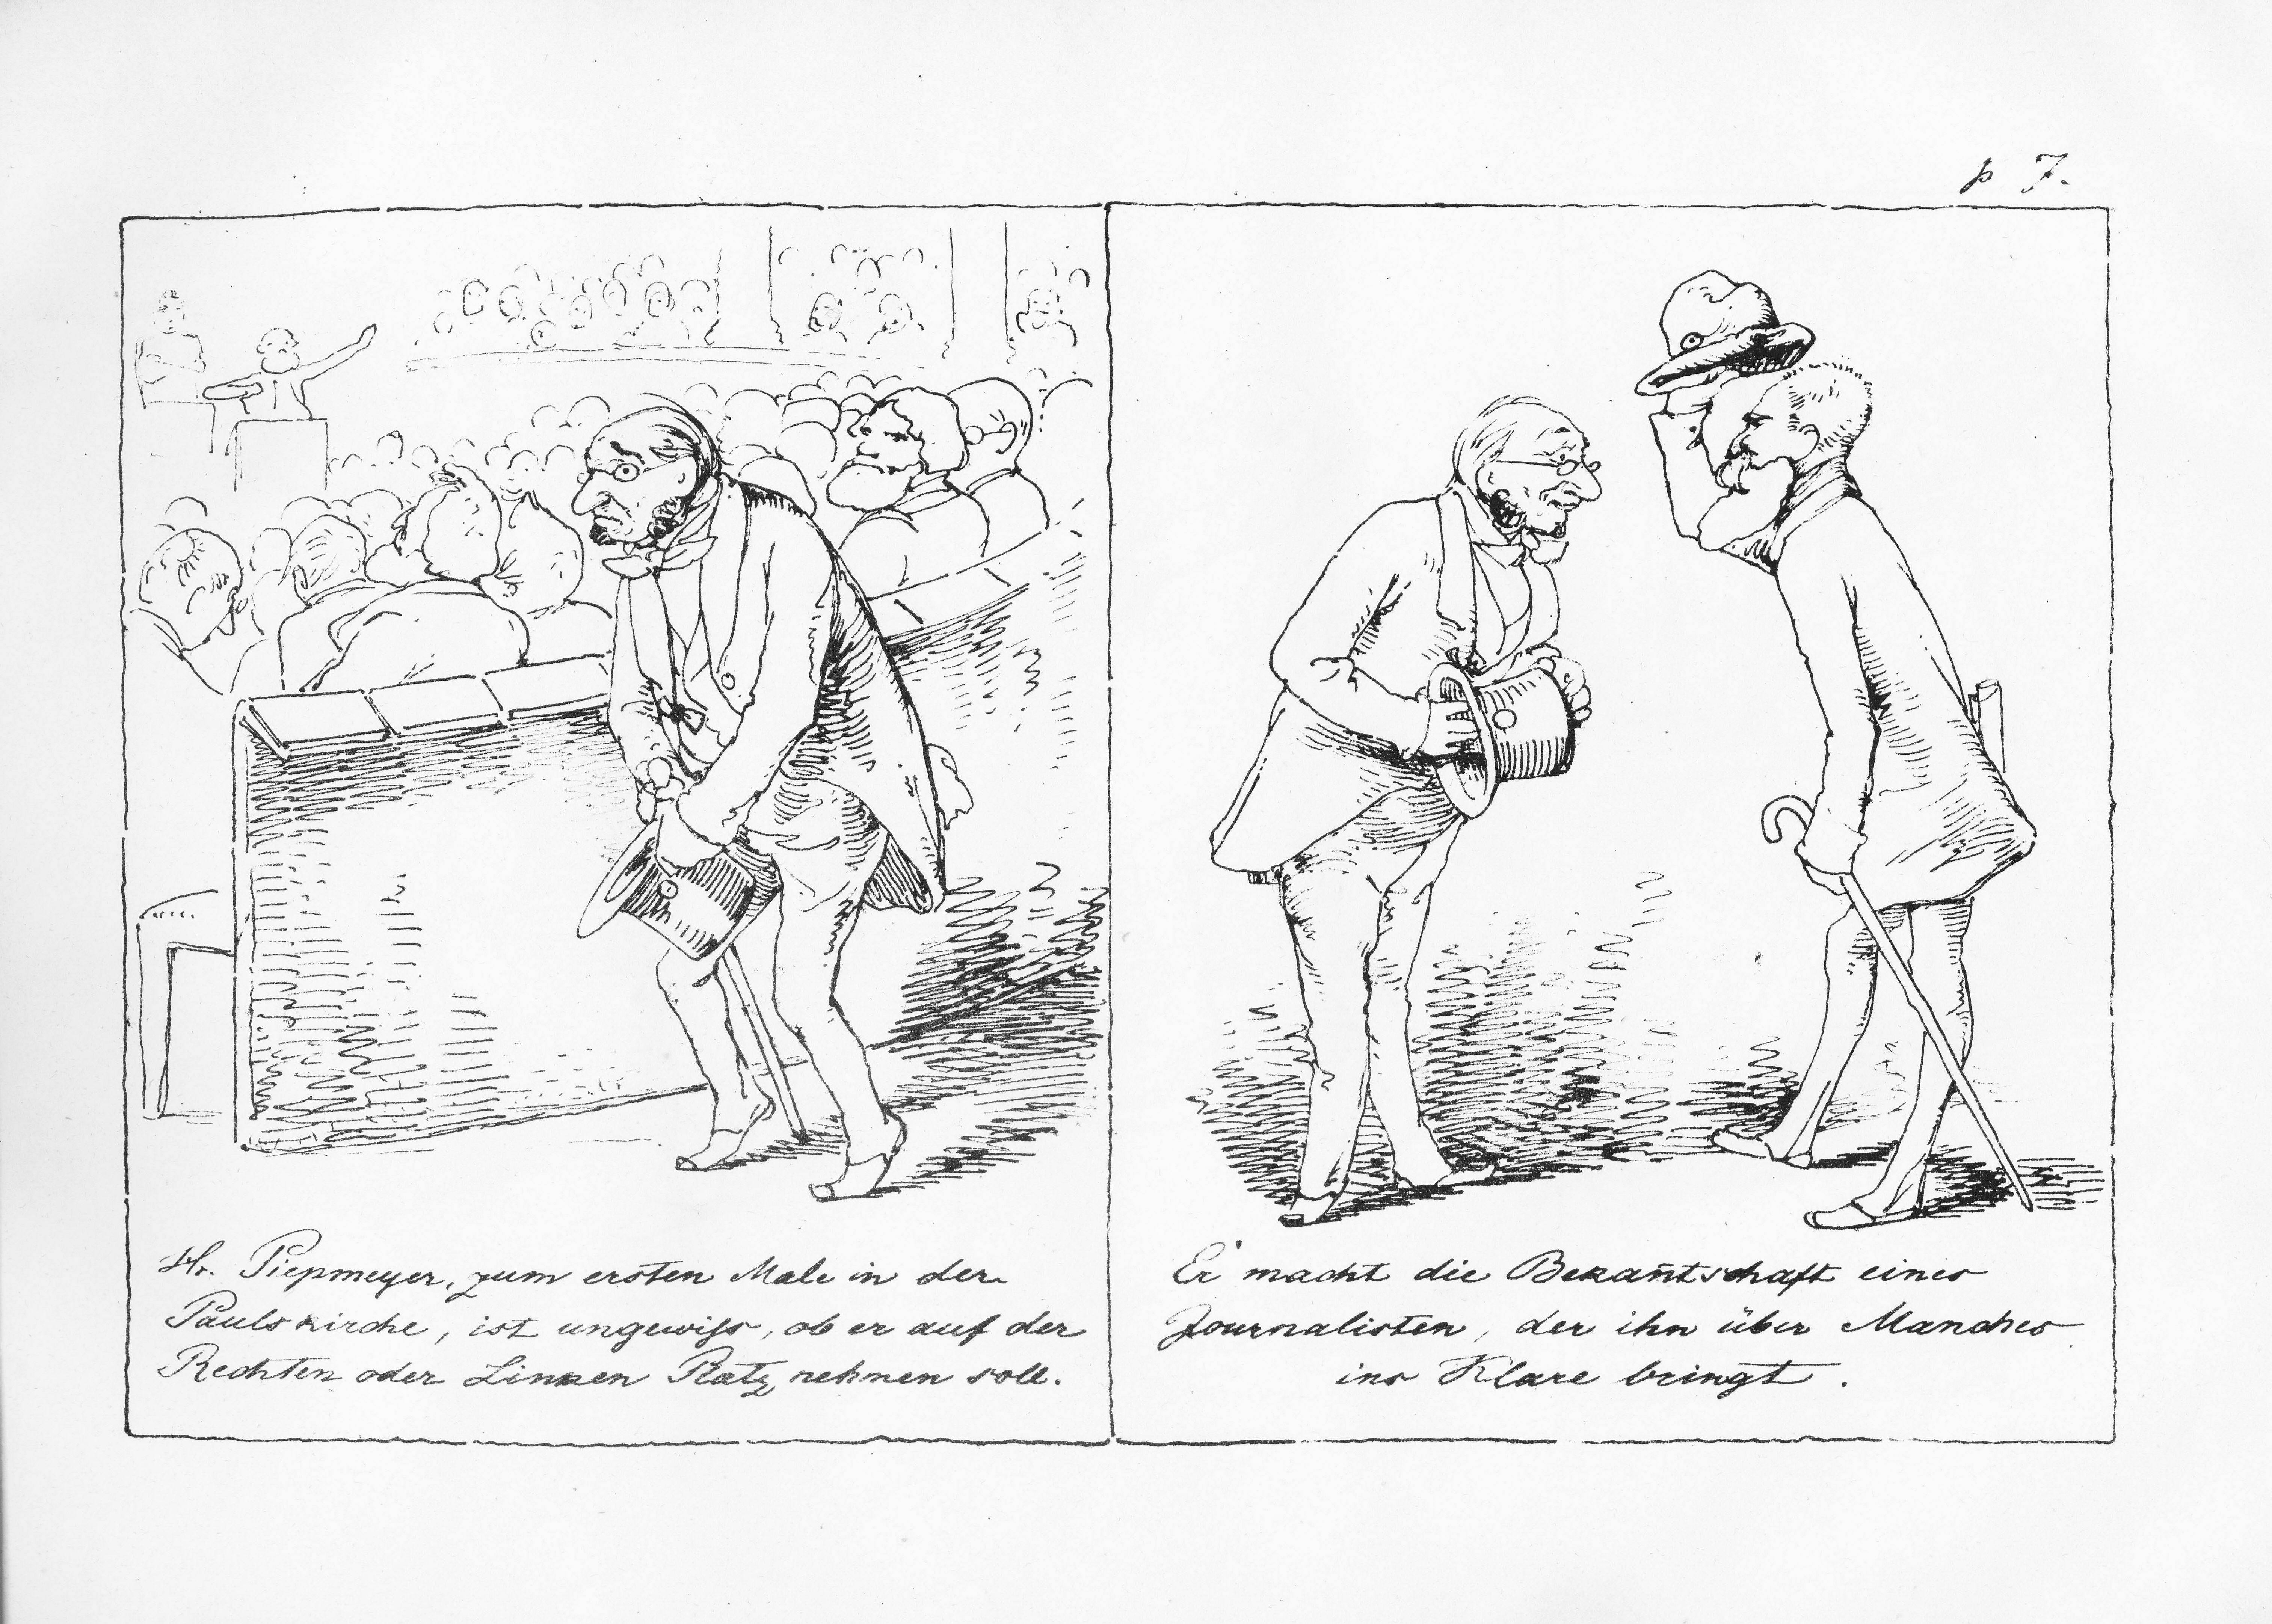 p 7.
Hr. Piepmeyer, zum ersten Male in der
Paulskirche, ist ungewiſs, ob er auf der
Rechten oder Linken Platz nehmen soll.
Er macht die Bekan̄tschaft eines
Journalisten, der ihn über Manches
ins Klare bringt.